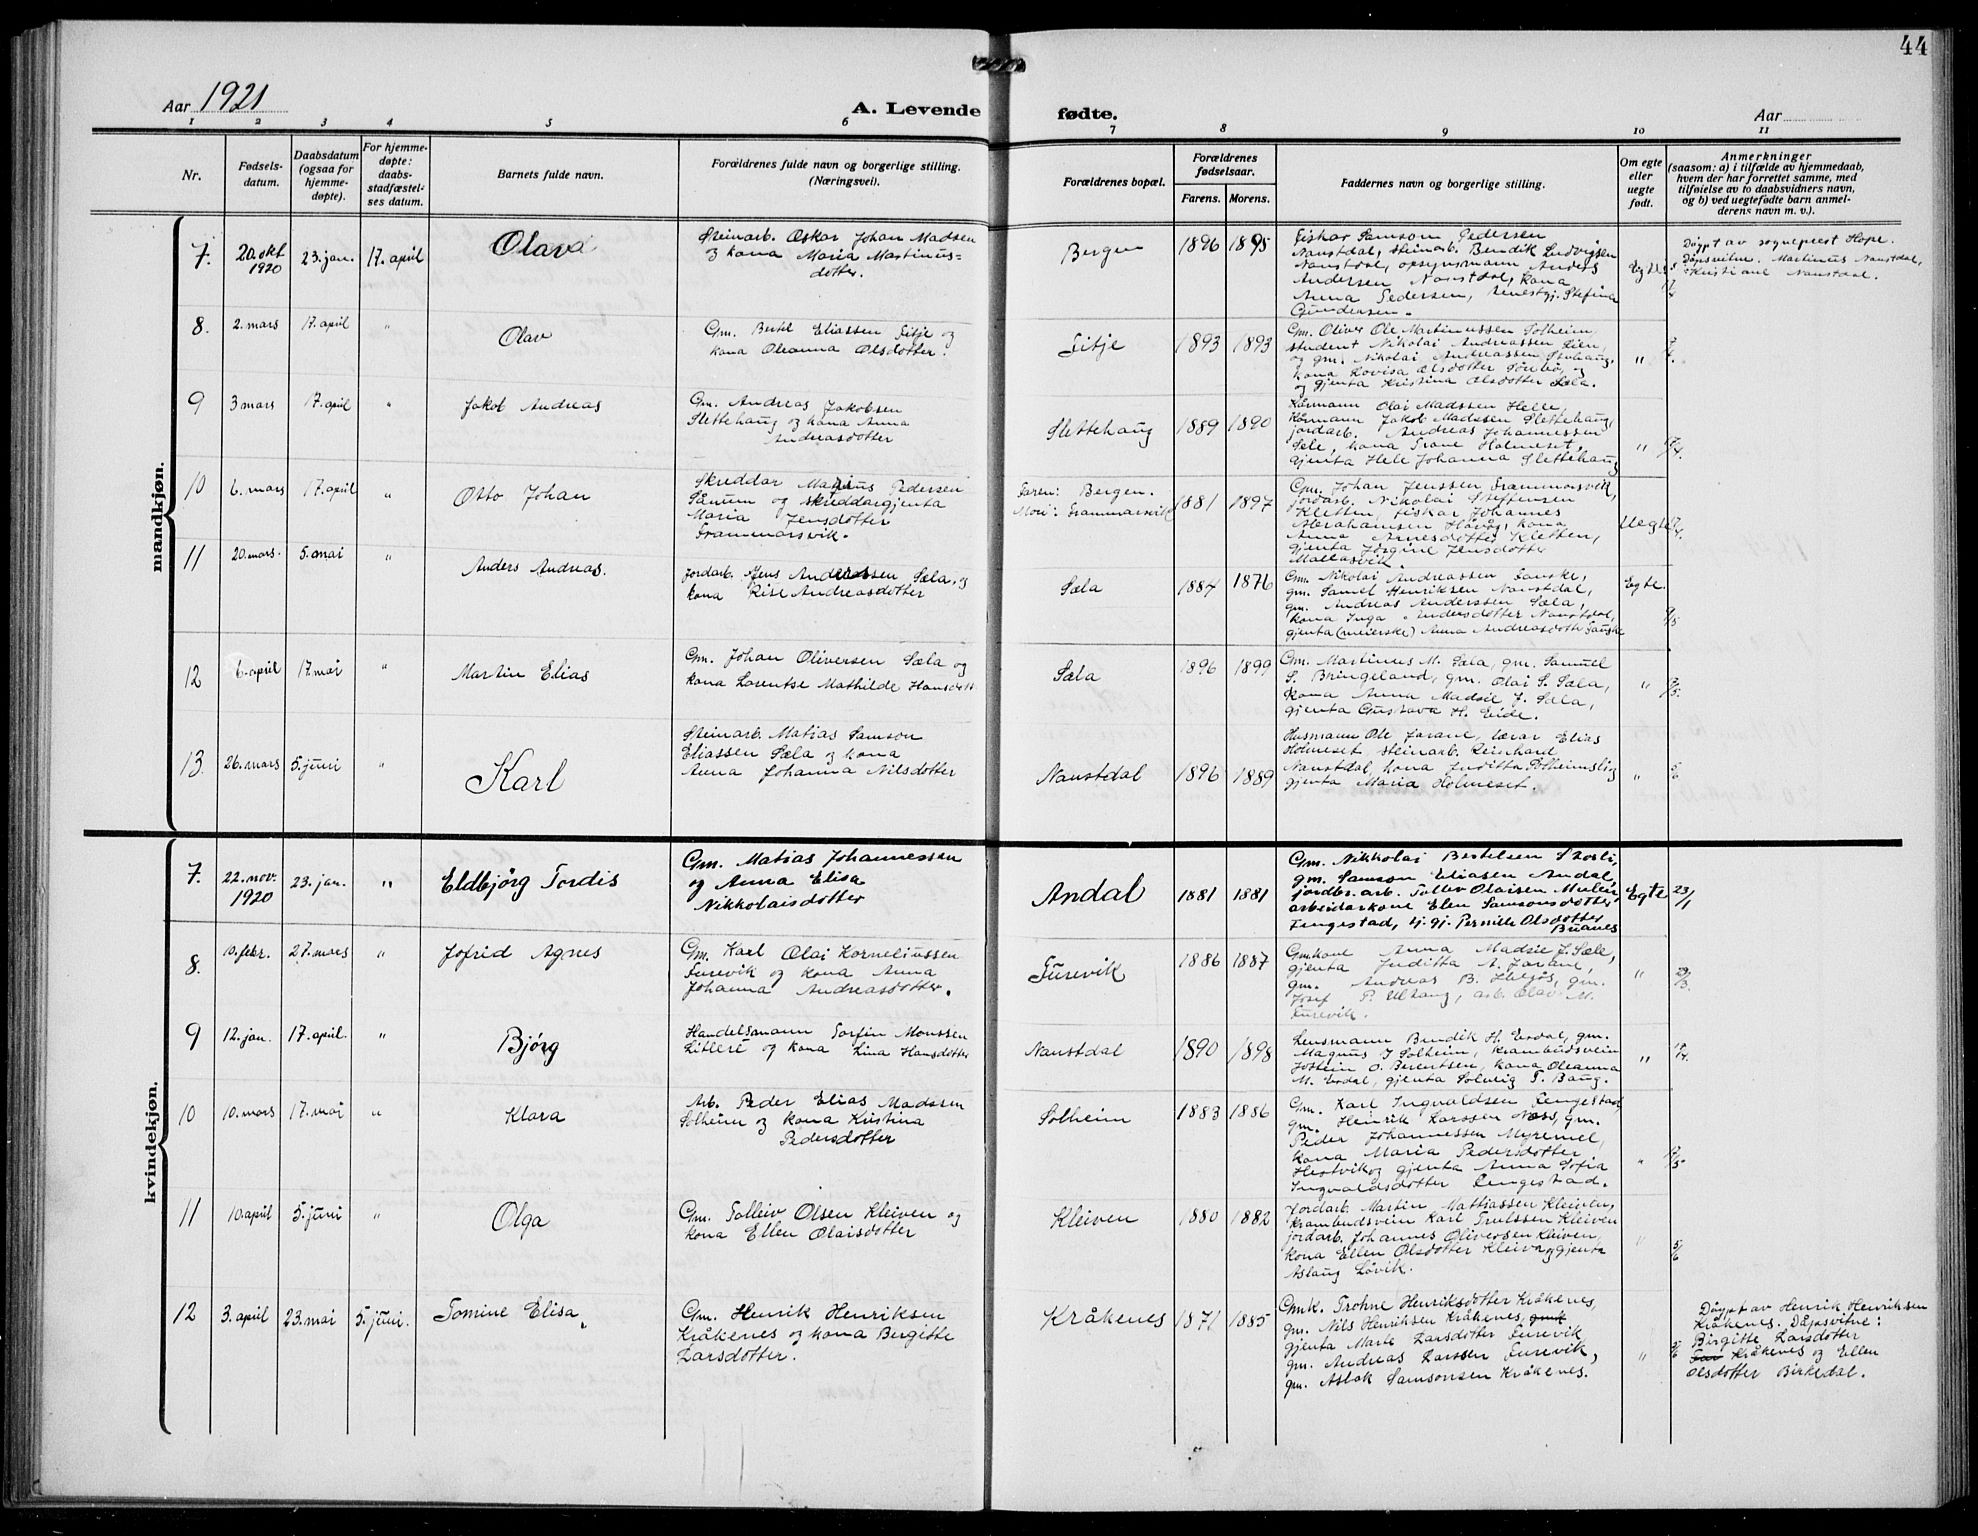 44
Aar 1921
A. Levende
fødte.
Aar
1 2 3 4 5 6 7 8 9 10 11
Nr.
Fødsels-
datum.
Daabsdatum
(ogsaa for
hjemme-
døpte).
For hjemme-
døpte:
daabs-
stadfæstel-
ses datum.
Barnets fulde navn.
Forældrenes fulde navn og borgerlige stilling.
(Næringsvei).
Forældrenes bopæl.
Forældrenes
fødselsaar.
Farens. Morens.
Faddernes navn og borgerlige stilling.
Om egte
eller
uegte
født.
Anmerkninger
(saasom: a) i tilfælde av hjemmedaab,
hvem der har forrettet samme, med
tilføielse av to daabsvidners navn,
og b) ved uegtefødte barn anmel-
derens navn m. v.).
mandkjøn.
7. 20. okt. 1920 23. jan. 17. april Olava
Steinarb. Oskar Johan Madsen
og kona Maria Martinus-
dotter.
Bergen 1896 1895
Fiskar Samson Pedersen
Naustdal, steinarb. Bendik Ludvigsen
Naustdal, opsynsmann Anders
Andersen Naustdal, kona
Anna Pedersen, tenestgj. Stefina
Gundersen.
Egte 17/4
Døypt av sogneprest Hope.
Døpsvitne. Martinus Naustdal,
Kristiane Naustdal.
8. 2. mars 17. april " Olav
Gm. Bertel Eliassen Fitje og
kona Oleanna Olsdotter.
Fitje 1893 1893
Gm. Oliver Ole Martinussen Solheim,
student Nikolai Andreassen Lien,
og gm. Nikolai Andreassen
kona Lovisa Olsdotter
og gjenta Kristina Olsdotter Sæla.
"
9 3 mars 17. april " Jakob Andreas
Gm. Andreas Jakobsen
Slettehaug og kona Anna
Andreasdotter
Slettehaug 1889 1890
Kårmann Olai Madssen Helle,
Kårmann Jakob Madssen Slettehaug,
jordarb. Andreas Johannessen
Sæle, kona Trone Holmeset,
gjenta Hele Johanna Slettehaug
" 17/4.
10 6. mars 17. april " Otto Johan
Skreddar Pedersen
Sånum og skreddargjenta
Maria Jensdotter
Frammarsvik.
Faren: Bergen.
Mori: Frammarsvik 1881 1897
Gm. Johan Jenssen Frammarsvik,
jordarb. Nikolai Steffensen
Kletten, fiskar Johannes
Abrahamsen Høvåg, kona
Anna Arnesdotter Kletten,
gjenta Jørgine Jensdotter
Mallasvik.
Uegte 17/4.
11 20. mars. 5. mai " Anders Andreas.
Jordarb. Jens Anderssen Sæla, og
kona Rise Andreasdotter
Sæla 1884 1876
Gm. Nikolai Andreassen Sanske,
gm. Samel Henriksen Naustdal,
gm. Andreas Anderssen Sæla,
kona Inga Andersdotter Naustdal,
gjenta (meierske) Anna Andreasdottr Sanske
Egte. 5/5
12 6. april 17. mai " Martin Elias
Gm. Johan Oliversen Sæla og
kona Lorentse Mathilde Hansdott
Sæla 1896 1899
Gm. Martinus M. Sæla, gm. Samuel
S. Bringeland, gm. Olai S. Sæla,
kona Anna Madsie J. Sæla,
gjenta Gustava H. Eide.
" 17/5.
13 26. mars 5. juni " Karl
Steinarb. Matias Samson
Eliassen Sæla og kona
Anna Johanna Nilsdotter
Naustdal 1896 1889
Husmann Ole Jarane, lærar Elias
Holmeset steinarb. Reinhard
Naustdal, kona Juditta Solheimslig
gjenta Maria Holmeset.
" 5/6
kvindekjøn.
7. 22. nov. 1920 23. jan. " Eldbjørg Tordis
Gm. Matias Johannessen
og Anna Elisa
Nikkolaisdotter
Andal 1881 1881
Gm. Nikkolai Bertelsen Storli,
gm. Samson Eliasen Andal,
jordbr. arb. Tollev Olaisen Mulen
arbeidarkone Elen Samsonsdotter
Lengestad, tj. gj. Pernille Olsdotter
Buanes
Egte 23/1
8. 10. febr. 27. mars " Jofrid Agnes
Gm. Karl Olai Korneliussen
Furevik og kona Anna
Johanna Andreasdotter.
Furevik 1886 1887
Gmkone Anna Madsie J. Sæle,
gjenta Juditta A. Jarane,
gm. Andreas B. gm.
Josef P. Ulltang, arb. Olav M.
Furevik.
" 27/3.
9 12. jan. 17. april. " Bjørg
Handelsmann Torfin Monssen
Litleré og kona Lina Hansdotter
Naustdal 1890 1898
Lensmann Bendik H. Erdal, gm.
Magnus J Solheim, krambudsvein
Jostein O. Berentsen, kona Oleanna
M. Erdal, gjenta Solveig T. Baug.
" 17/4.
10 10. mars 17. mai " Klara
Arb. Peder Elias Madssen
Solheim og kona Kristina
Pedersdotter
Solheim 1883 1886
Gm. Karl Ingvaldsen Lengestad
gm. Henrik Larssen Næss, gm.
Peder Johannessen Myremel,
kona Maria Pedersdotter
Hestvik og gjenta Anna Sofia
Ingvaldsdotter Lengestad.
" 17/5
11 10. april 5. juni " Olga
Gm. Tolleiv Olsen Kleiven og
kona Ellen Olaisdotter
Kleiven 1880 1882
Jordarb. Martin Mattiassen Kleiven,
krambudsvein Karl Trulssen Kleiven
jordarb. Johannes Oliversen Kleiven,
kona Ellen Olsdotter Kleiven, gjenta
Aslaug Løvik.
" 5/6
12 3. april 23. mai 5. juni. Tomine Elisa.
Gm. Henrik Henriksen
Kråkenes og kona Bergitte
Larsdotter.
Kråkenes 1871 1885
Gmk. Trohne Henriksdotter Kråkenes,
gm. Nils Henriksen Kråkenes, gmk
gjenta Marte Larsdotter Furevik,
gm. Andreas Larssen Furevik,
gm. Aslak Samsonsen Kråkenes.
" 5/6
Døypt av Henrik Henriksen
Kråkenes. Døpsvitne:
Birgitte Larsdotter
Kråkenes og Ellen
Olsdotter Birkedal.